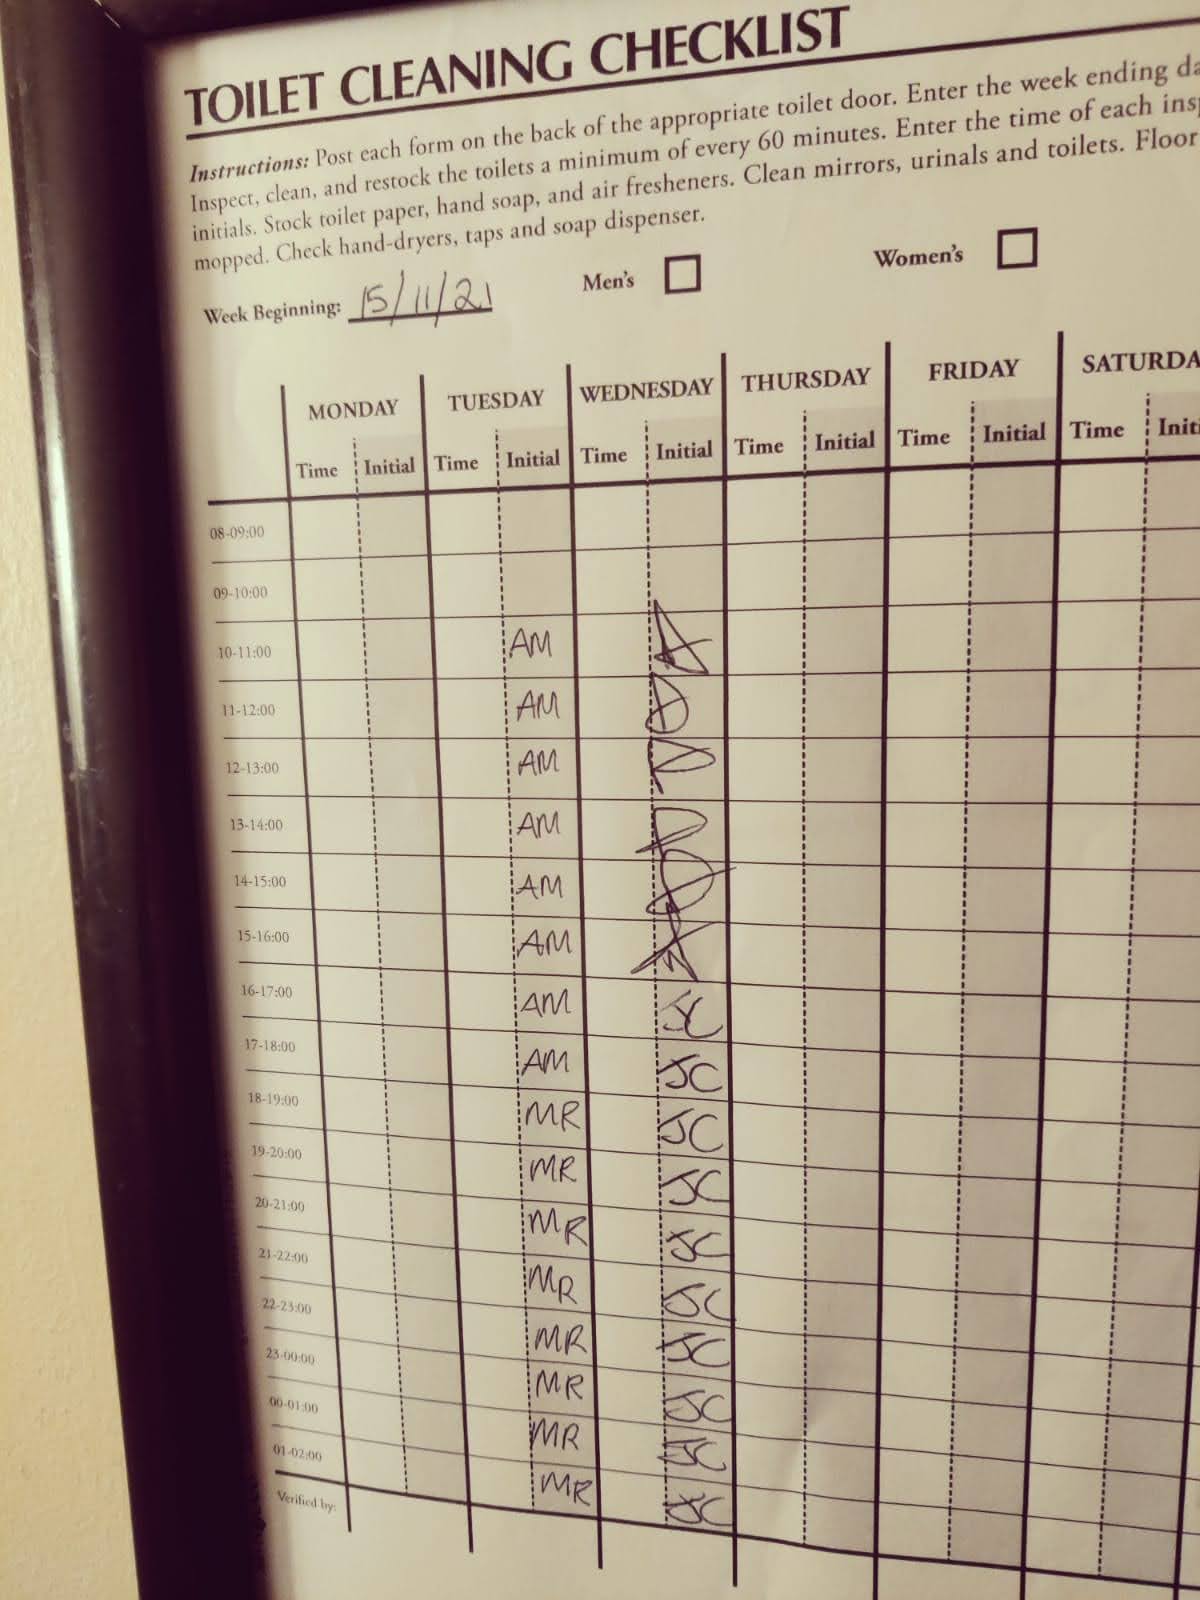 TOILET CLEANING CHECKLIST
Instructions: Post each form on the back of the appropriate toilet door. Enter the week ending
Inspect, clean, and restock the toilets a minimum of every 60 minutes. Enter the time of each
initials. Stock toilet paper, hand soap, and air fresheners. Clean mirrors, urinals and toilets. Floor
mopped. Check hand-dryers, taps and soap dispenser.
Week Beginning: 15/11/21 Men's Women's
MONDAY TUESDAY WEDNESDAY THURSDAY FRIDAY SATURDA
Time Initial Time Initial Time Initial Time Initial Time Initial Time Initi
08-09:00
09-10:00
10-11:00 AM
11-12:00 AM
12-13:00 AM
13-14:00 AM
14-15:00 AM
15-16:00 AM
16-17:00 AM JC
17-18:00 AM JC
18-19:00 MR JC
19-20:00 MR JC
20-21:00 MR JC
21-22:00 MR JC
22-23:00 MR JC
23-00:00 MR JC
00-01:00 MR JC
01-02:00 MR JC
Verified by: